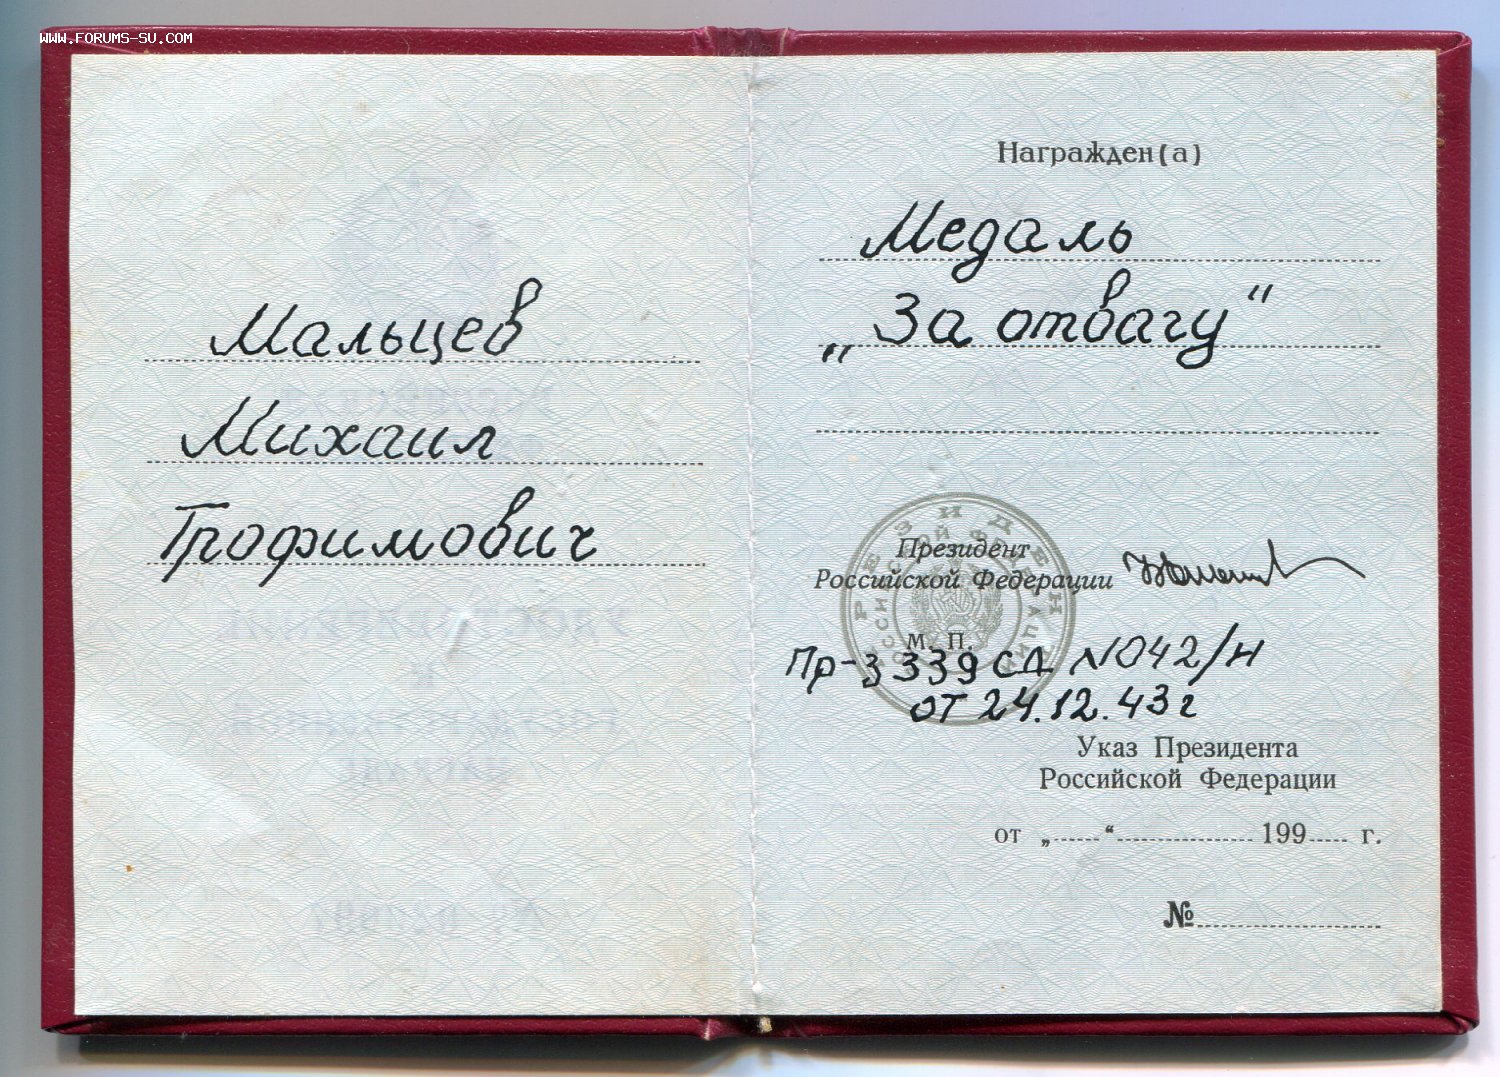 WWW.FORUMS-SU.COM
Мальцев
Михаил
Трофимович
Награжден(а)
Медаль
„За отвагу“
Президент
Российской Федерации
м. п.
Пр-з 339 СД №042/н
от 24.12.43 г
Указ Президента
Российской Федерации
от „......“.................. 199..... г.
№